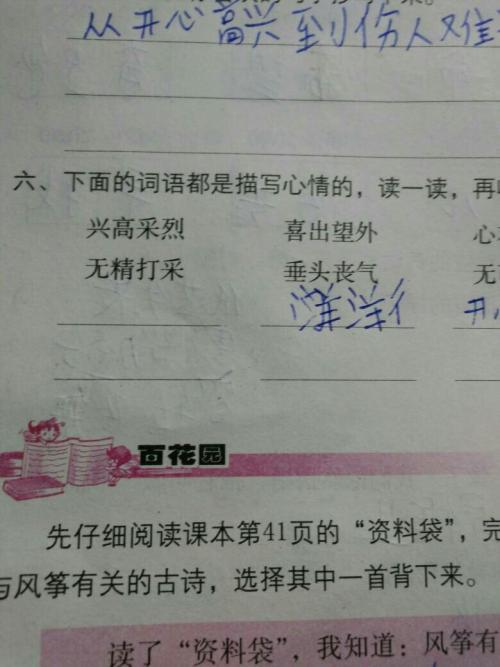 从开心高兴到伤人难
六、下面的词语都是描写心情的，读一读，再
兴高采烈 喜出望外 心
无精打采 垂头丧气 无
洋洋 开
百花园
先仔细阅读课本第41页的“资料袋”，完
与风筝有关的古诗，选择其中一首背下来。
读了“资料袋”，我知道：风筝有